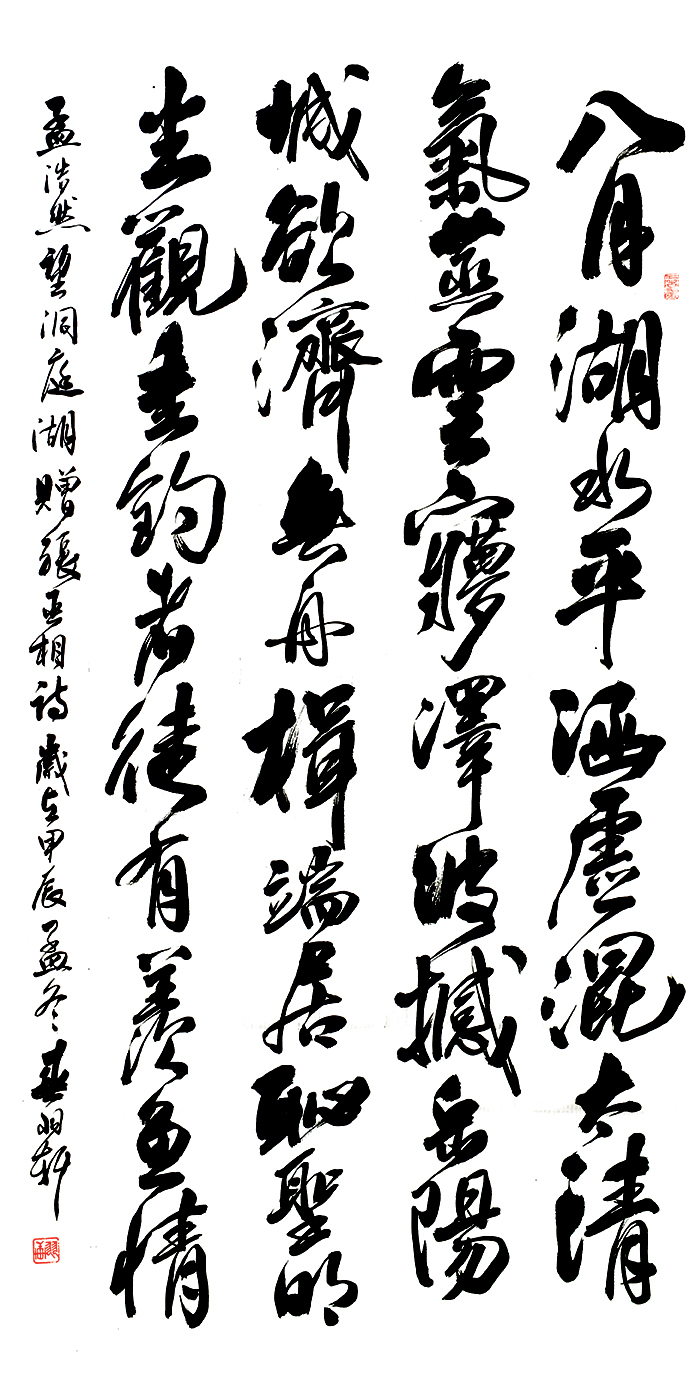 八月湖水平涵虚混太清
氣蒸雲夢澤波撼岳陽
城欲濟無舟楫端居恥聖明
坐觀垂釣者徒有羨魚情
孟浩然望洞庭湖贈張丞相詩歲在甲辰孟冬春羽軒